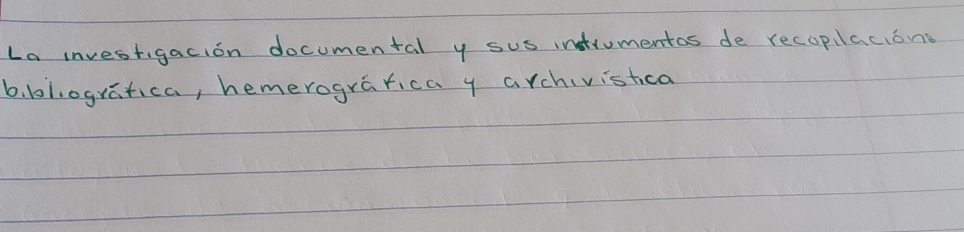 La investigación documental y sus instrumentos de recopilación:
bibliográfica, hemerográfica y archivística